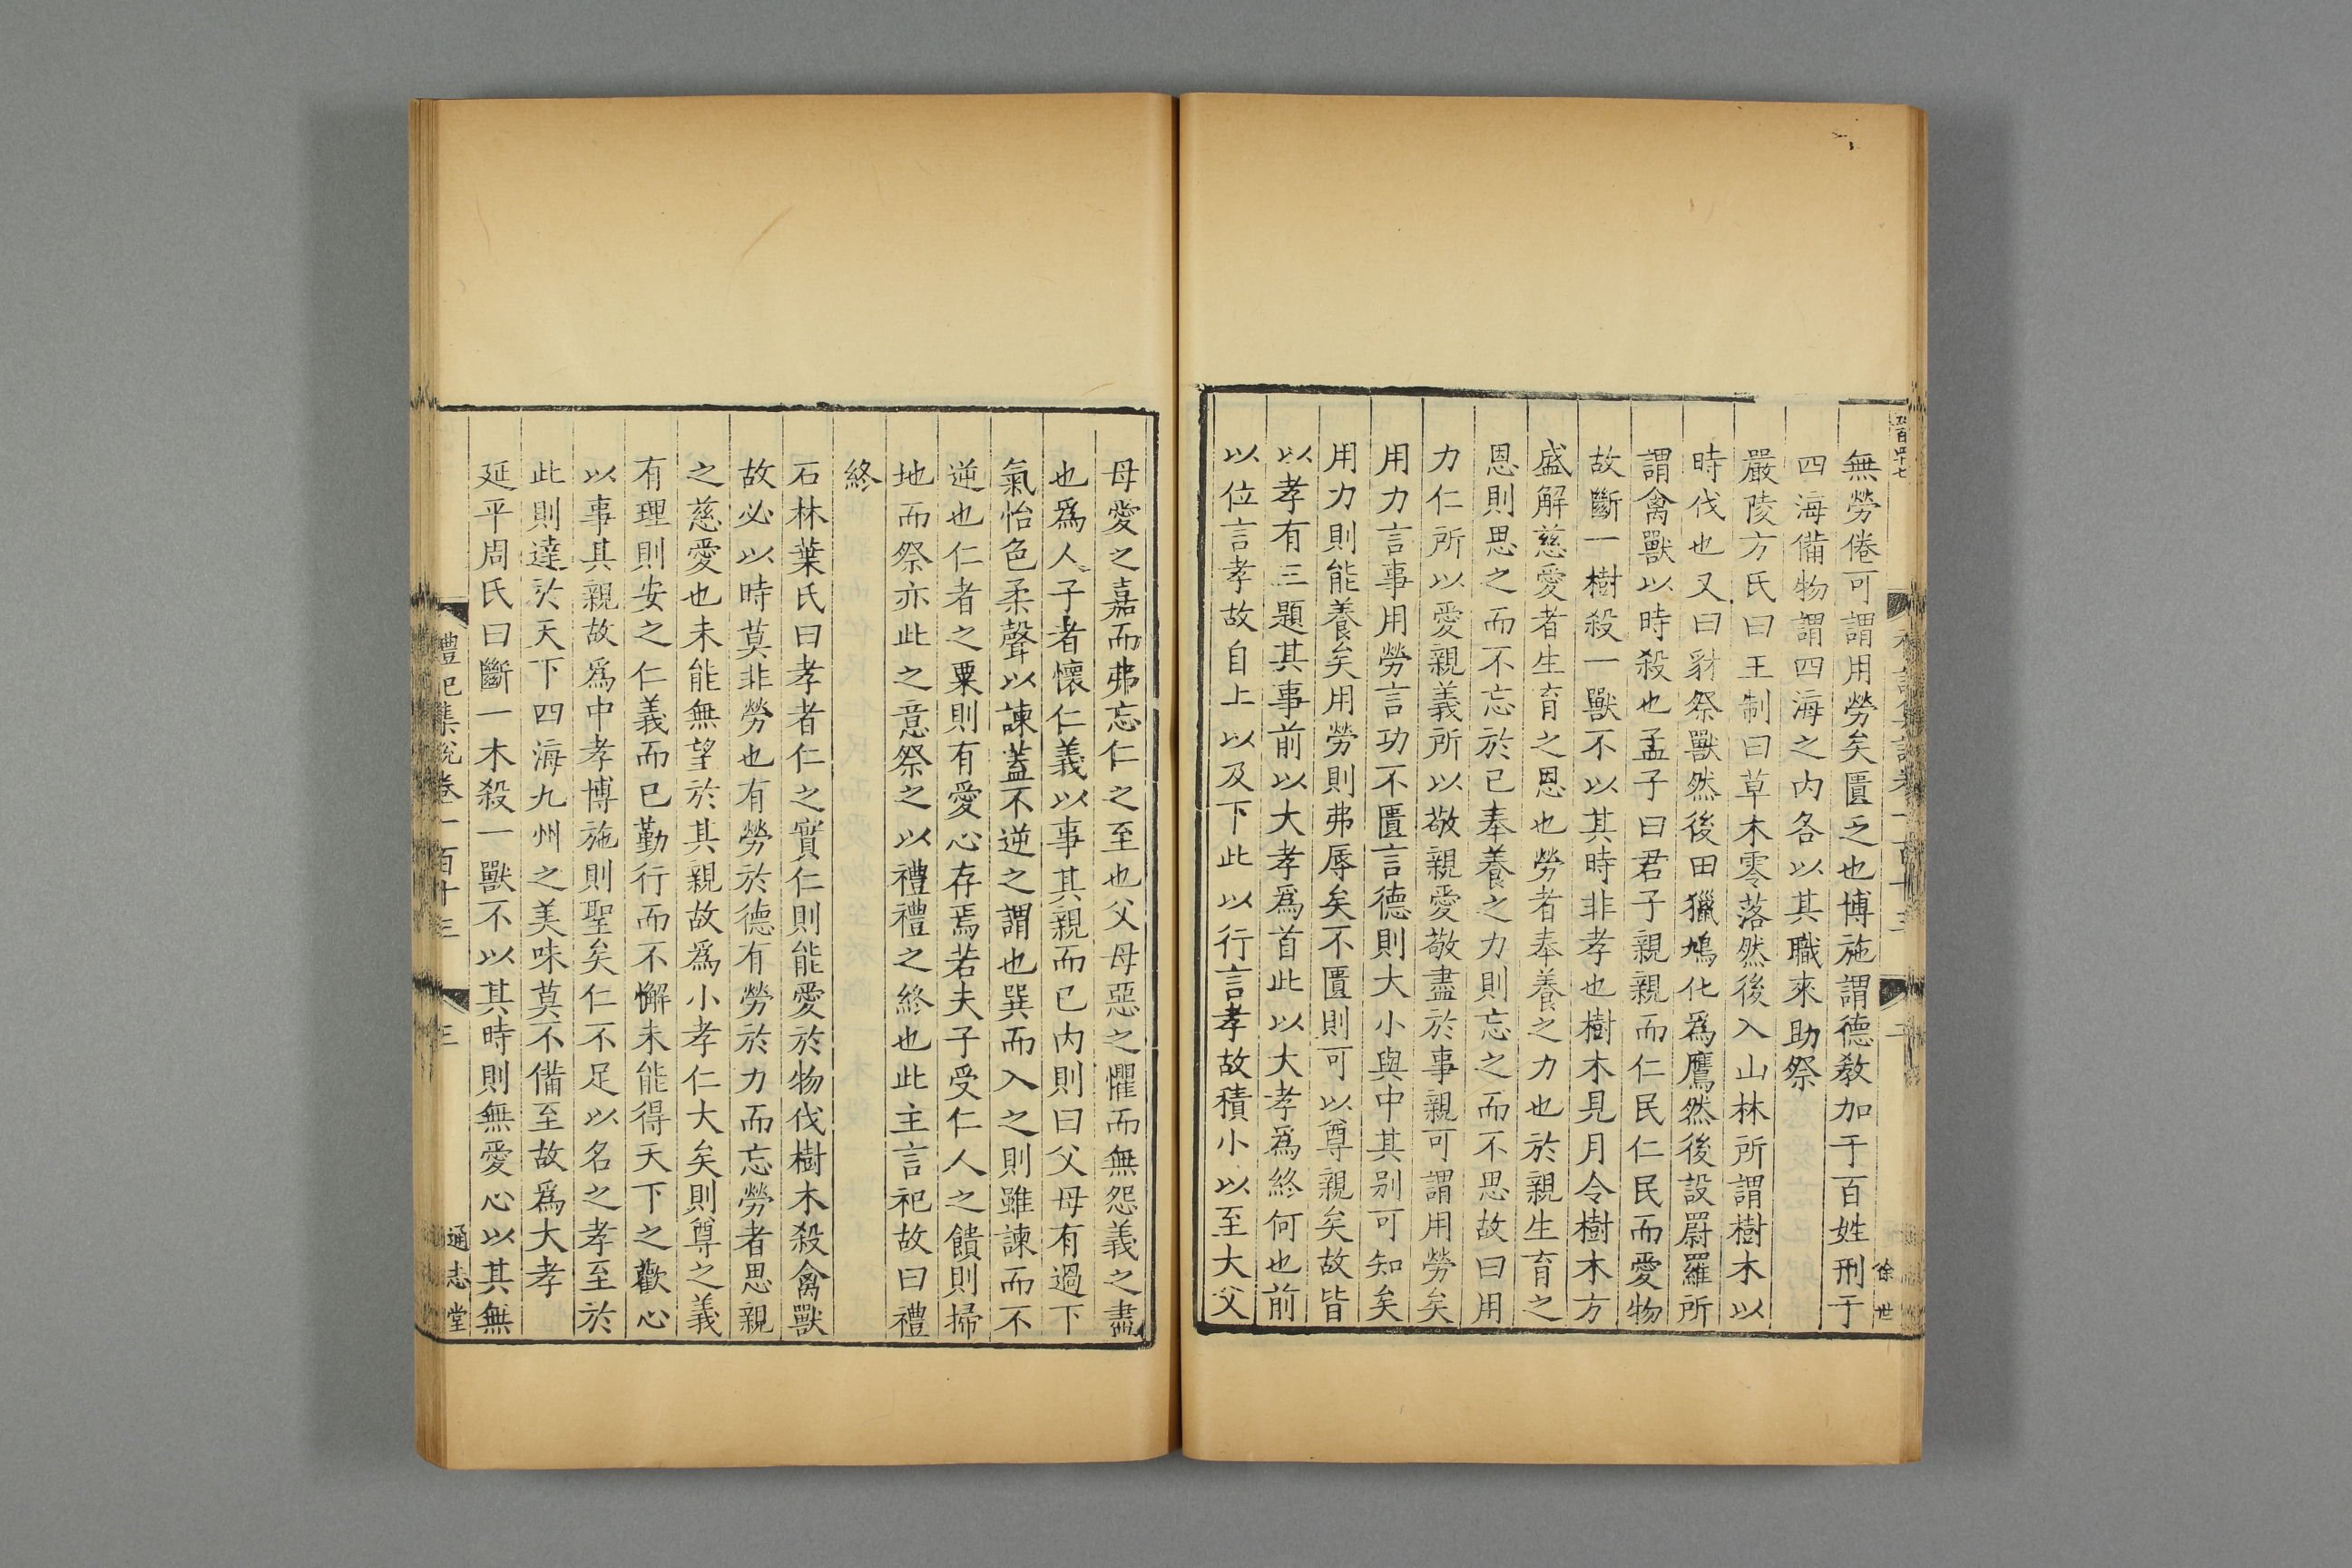 無勞倦可謂用勞矣匱乏也博施謂德敎加于百姓刑于
四海備物謂四海之内各以其職來助祭
嚴陵方氏曰王制曰草木零落然後入山林所謂樹木以
時伐也又曰豺祭獸然後田獵鳩化爲鷹然後設罻羅所
謂禽獸以時殺也孟子曰君子親親而仁民仁民而愛物
故斷一樹殺一獸不以其時非孝也樹木見月令樹木方
盛解慈愛者生育之恩也勞者奉養之力也於親生育之
恩則思之而不忘於已奉養之力則忘之而不思故曰用
力仁所以愛親義所以敬親愛敬盡於事親可謂用勞矣
用力言事用勞言功不匱言德則大小與中其别可知矣
用力則能養矣用勞則弗辱矣不匱則可以尊親矣故皆
以孝有三題其事前以大孝爲首此以大孝爲終何也前
以位言孝故自上以及下此以行言孝故積小以至大父
徐世
母愛之嘉而弗忘仁之至也父母惡之懼而無怨義之盡
也爲人子者懷仁義以事其親而已内則曰父母有過下
氣怡色柔聲以諫蓋不逆之謂也巽而入之則雖諫而不
逆也仁者之粟則有愛心存焉若夫子受仁人之饋則掃
地而祭亦此之意祭之以禮禮之終也此主言祀故曰禮
終
石林葉氏曰孝者仁之實仁則能愛於物伐樹木殺禽獸
故必以時莫非勞也有勞於德有勞於力而忘勞者思親
之慈愛也未能無望於其親故爲小孝仁大矣則尊之義
有理則安之仁義而已勤行而不懈未能得天下之歡心
以事其親故爲中孝博施則聖矣仁不足以名之孝至於
此則達於天下四海九州之美味莫不備至故爲大孝
延平周氏曰斷一木殺一獸不以其時則無愛心以其無
禮記集說卷一百十三
三
通志堂